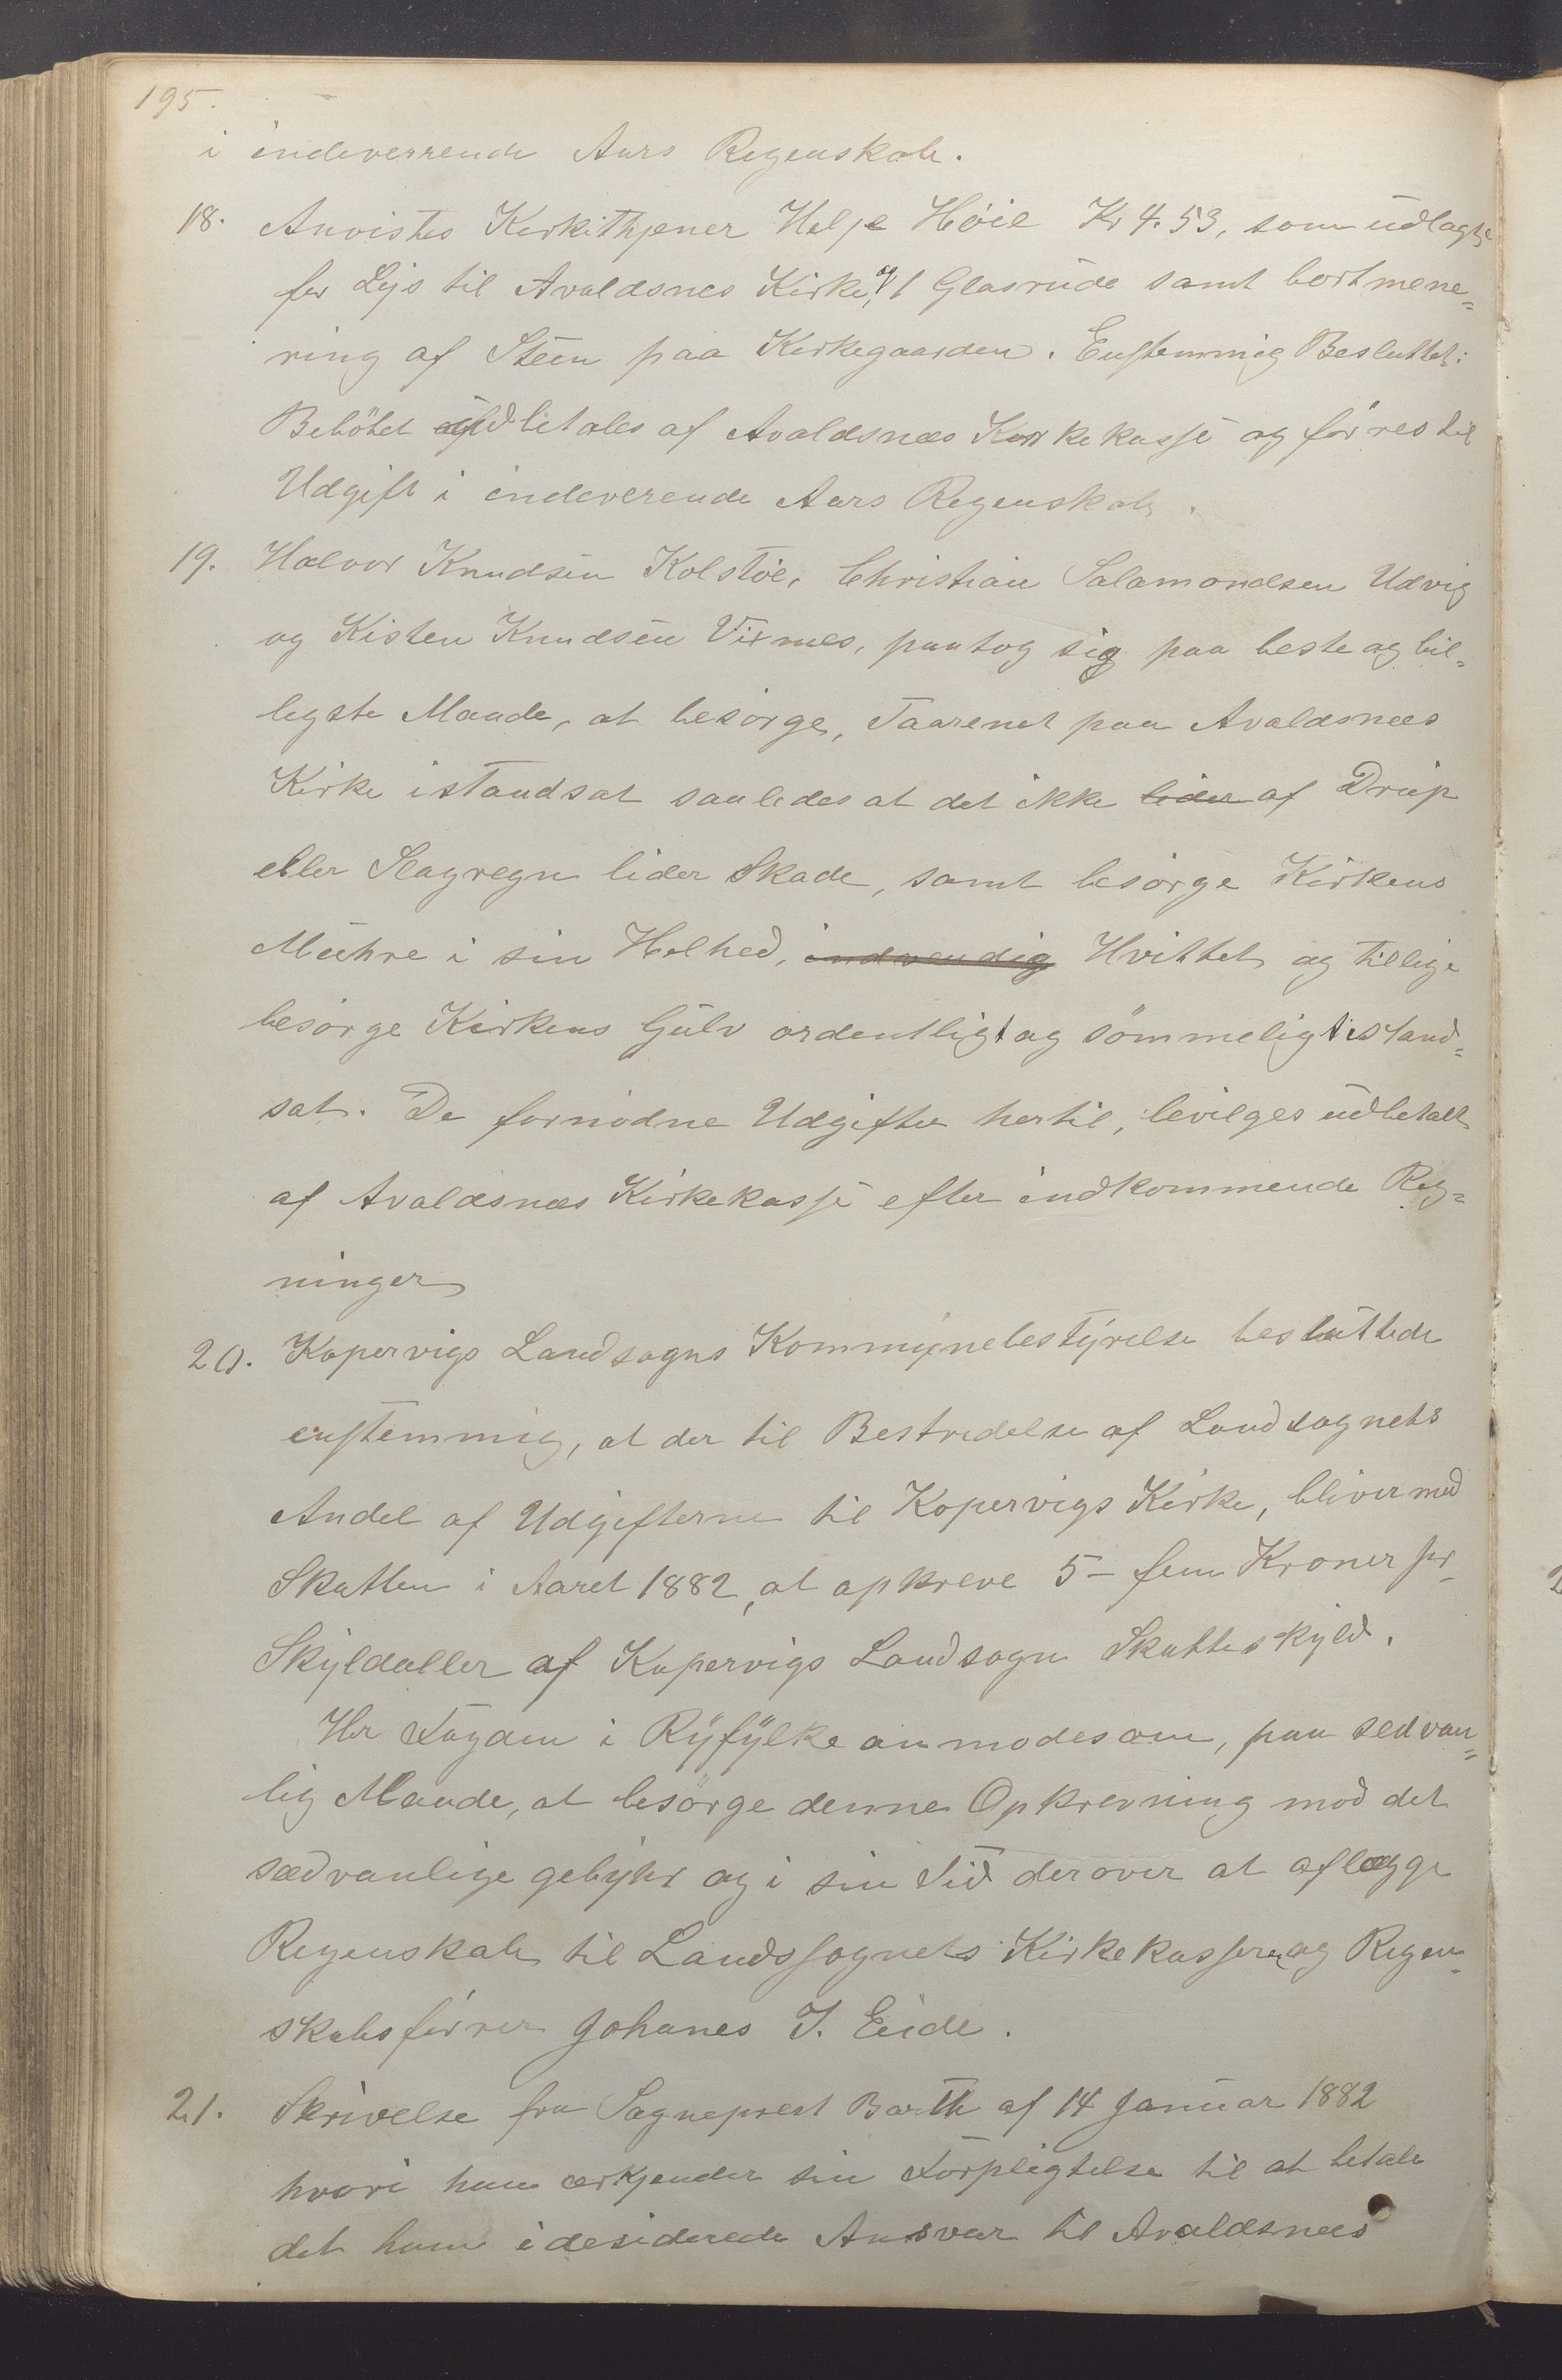 195.
i indeverrende Aars Regenskab.
18. Anvistes Kirkethjener Helje Höie Kr 4.53, som udlagte
for Lys til Avaldsnes Kirke, og 1 Glasrude samt bortmene=
ring af Steen paa Kirkegaarden. Enstemmig Besluttet:
Belöbet udbetales af Avaldsnæs Kirkekasse og föres til
Udgift i indeverende Aars Regenskab.
19. Halvor Knudsen Kolstöe, Christian Salamondsen Udvig
og Kisten Knudsen Vixnes, paatog sig paa beste og bil=
ligste Maade, at besörge, Taarenet paa Avaldsnæs
Kirke istandsat saaledes at det ikke lider af Dryp
eller Slagregn lider Skade, samt besörge Kirkens
Muhre i sin Helhed, indvendig Hvittet og tillige
besörge Kirkens Gulv ordentligt og sömmeligt istand=
sat. De fornödne Udgifter hertil, bevilges udbetalt
af Avaldsnæs Kirkekasse efter indkommende Reg=
ninger
20. Kopervigs Landsogns Kommynebestyrelse besluttede
enstemmig, at der til Bestridelse af Landsognets
Andel af Udgifterne til Kopervigs Kirke, bliver med
Skatten i Aaret 1882, at opkreve 5 – fem Kroner pr
Skyldaller af Kopervigs Landsogn Skatteskyld.
Hr Fogden i Ryfylke anmodes om, paa sedvan=
lig Maade, at besörge denne Opkrevning mod det
sædvanlige gebyhr og i sin Tid derover at aflægge
Regenskab til Landssognets Kirkekasserer og Regen=
skabsförer Johanes J. Eide.
21. Skrivelse fra Sogneprest Barth af 14 Januar 1882
hvori han erkjender sin Forpligtelse til at betale
det ham i desiderede Ansvar til Avaldsnæs